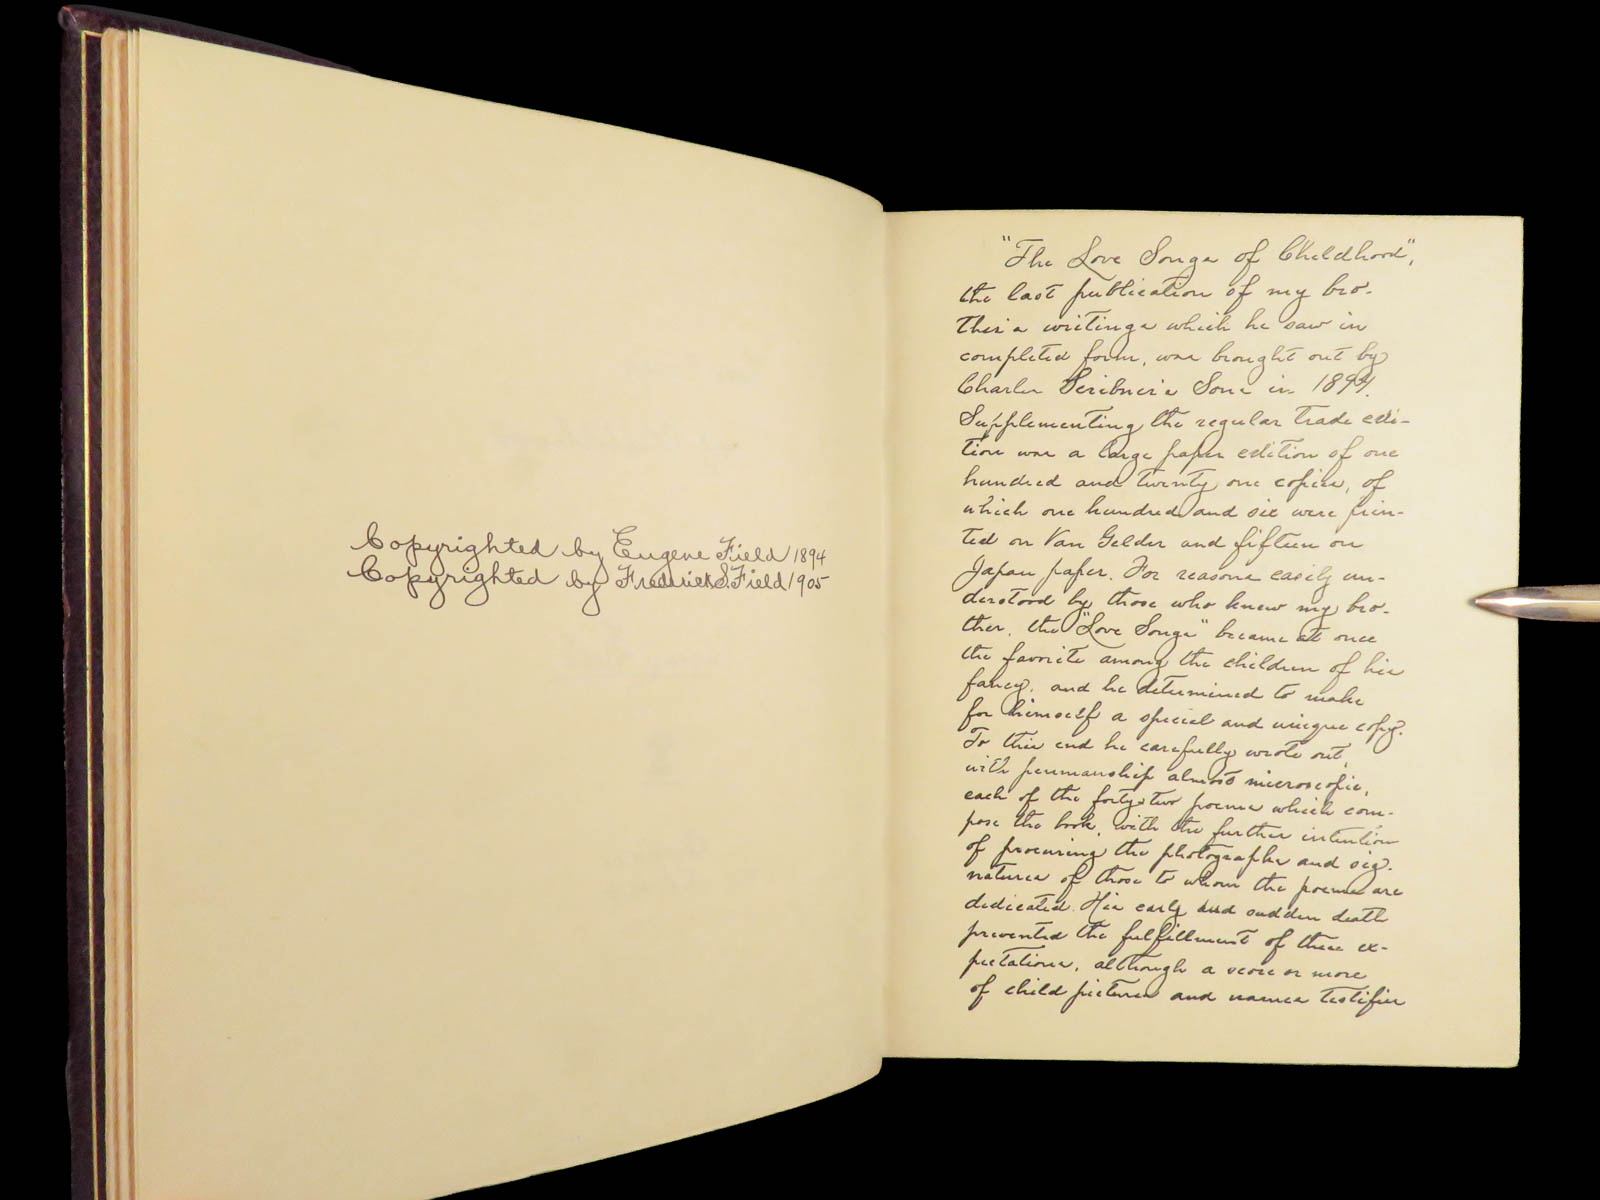 Copyrighted by Eugene Field 1894
Copyrighted by Frederick S Field 1905
"The Love Songs of Childhood",
the last publication of my bro-
ther's writings which he saw in
completed form, was brought out by
Charles Scribner's Sons in 1894.
Supplementing the regular trade edi-
tion was a large paper edition of one
hundred and twenty one copies, of
which one hundred and six were prin-
ted on Van Gelder and fifteen on
Japan paper. For reasons easily un-
derstood by those who knew my bro-
ther, the "Love Songs" became at once
the favorite among the children of his
fancy, and he determined to make
for himself a special and unique copy.
To this end he carefully wrote out,
with penmanship almost microscopic,
each of the forty-two poems which com-
pose the book, with the further intention
of procuring the photographs and sig-
natures of those to whom the poems are
dedicated. His early and sudden death
prevented the fulfillment of these ex-
pectations, although a score or more
of child pictures and names testifies